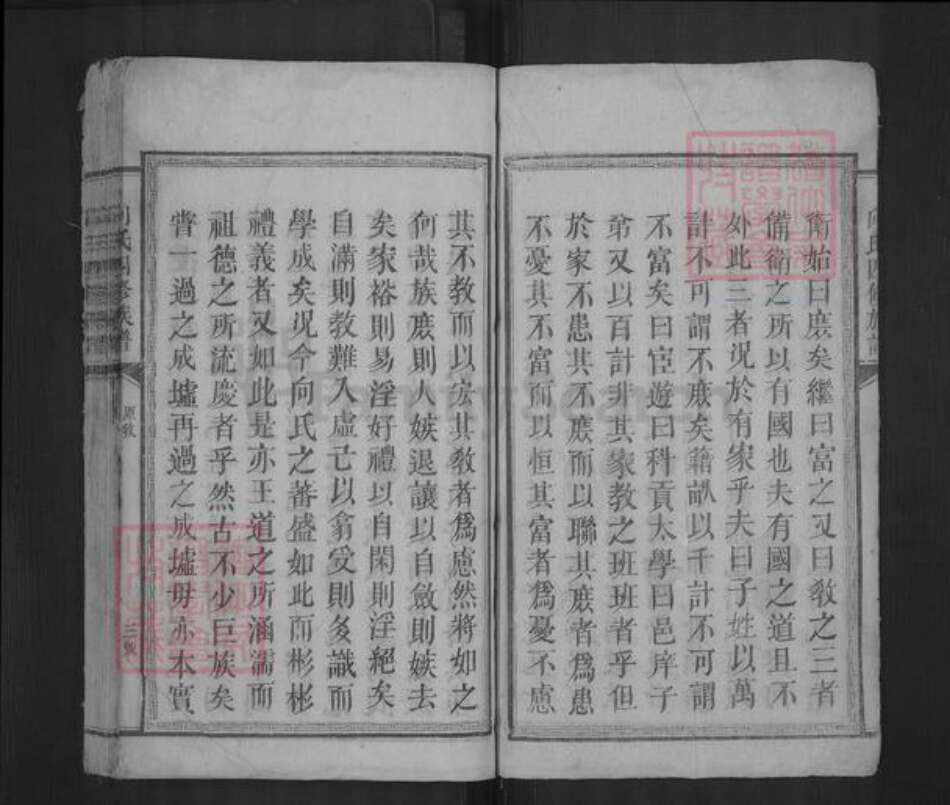 衛始曰庻矣繼曰富之又曰敎之三者
備衛之所以有國也夫有國之道且不
外此三者況於有家乎夫曰子姓以萬
計不可謂不庻矣籍畝以千計不可謂
不富矣曰宦遊曰科貢太學曰邑庠子
弟又以百計非其家教之班班者乎但
於家不患其不庻而以聯其庻者爲患
不憂其不富而以恒其富者爲憂不慮
其不教而以宏其敎者爲慮然將如之
何哉族庻則人嫉退讓以自斂則嫉去
矣家裕則易淫好禮以自閑則淫絕矣
自滿則教難入虛己以翕受則多識而
學成矣況今向氏之蕃盛如此而彬彬
禮義者又如此是亦王道之所涵濡而
祖德之所流慶者乎然古不少巨族矣
嘗一過之成墟再過之成墟毋亦本實
向氏四修族譜
原敎
三號